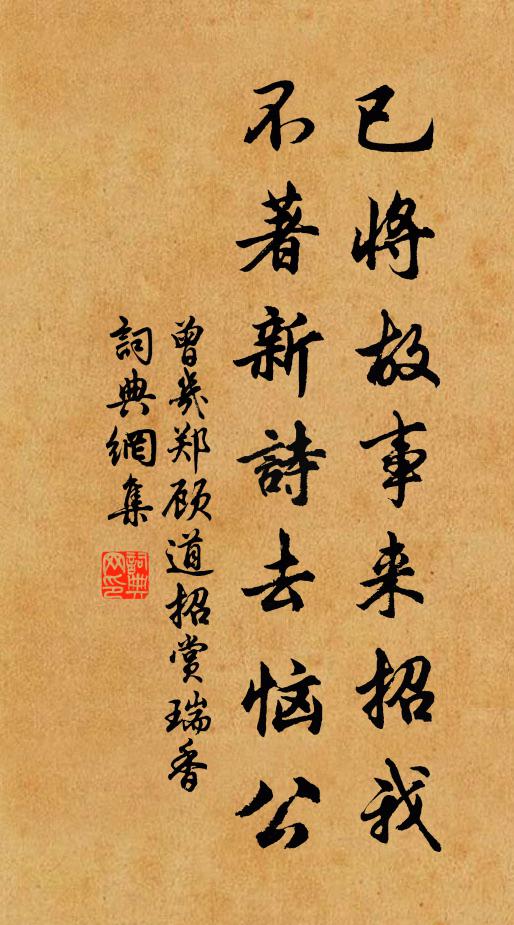 已将故事来招我
不著新詩去恼公
曾几郑顾道招赏瑞香
詞典網集
詞典网印